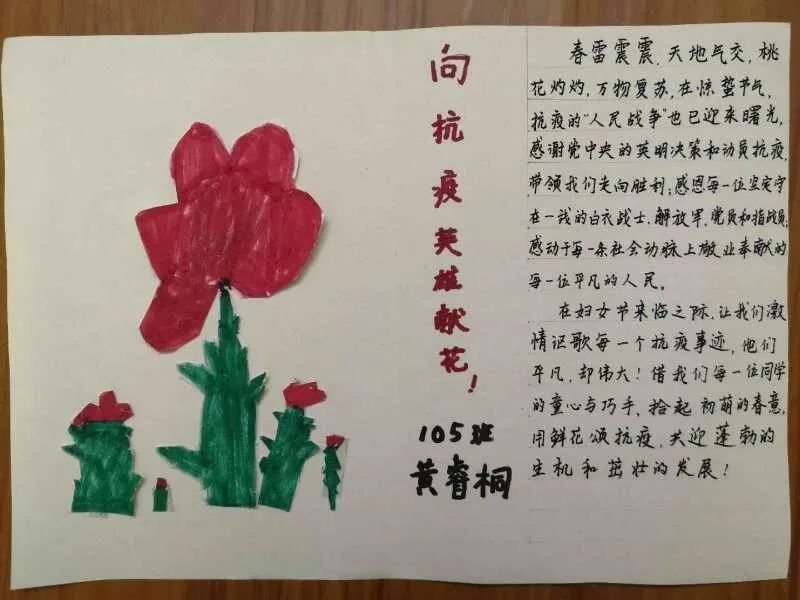 向抗疫英雄献花！
105班
黄睿桐
春雷震震，天地气交，桃
花灼灼，万物复苏，在惊蛰节气，
抗疫的“人民战争”也已迎来曙光，
感谢党中央的英明决策和动员抗疫，
带领我们走向胜利；感恩每一位坚守
在一线的白衣战士、解放军、党员和指战员；
感动于每一条社会动脉上敬业奉献的
每一位平凡的人民。
在妇女节来临之际，让我们激
情讴歌每一个抗疫事迹，他们
平凡，却伟大！借我们每一位同学
的童心与巧手，拾起初萌的春意，
用鲜花颂抗疫，共迎蓬勃的
生机和茁壮的发展！